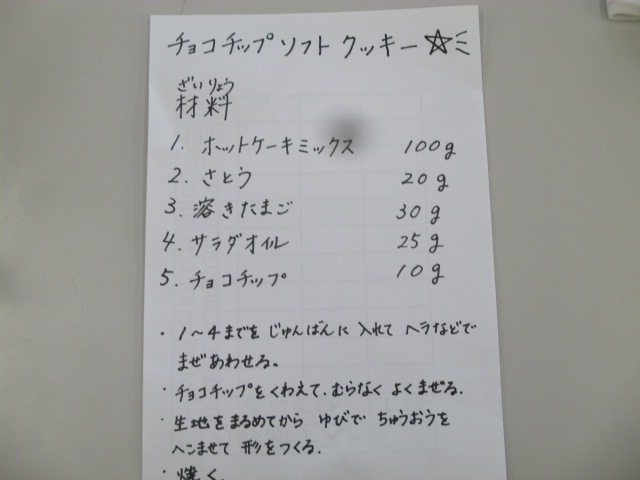 チョコチップソフトクッキー☆ミ
ざいりょう
材料
1. ホットケーキミックス 100g
2. さとう 20g
3. 溶きたまご 30g
4. サラダオイル 25g
5. チョコチップ 10g
・1～4までを じゅんばんに 入れて ヘラなどで
まぜあわせる。
・チョコチップをくわえて、むらなく よくまぜる.
・生地をまるめてから ゆびで ちゅうおうを
へこませて 形をつくる.
・焼く.